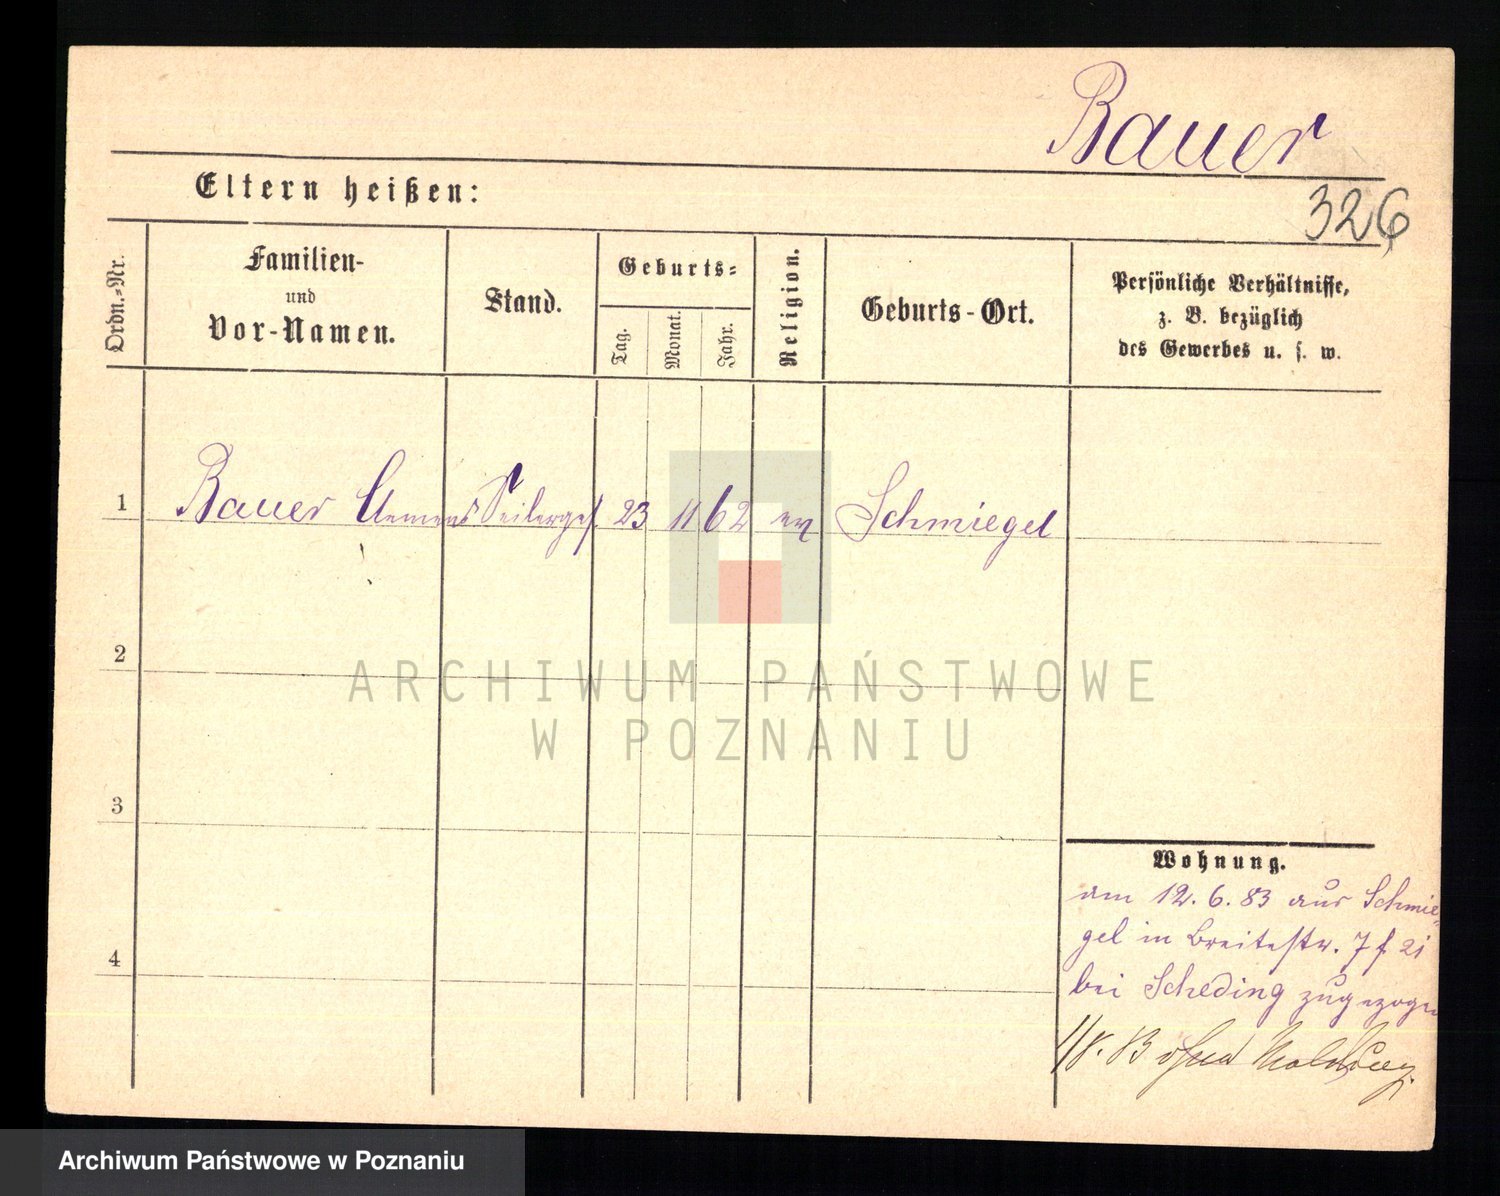 Bauer
Eltern heißen:
326
Ordn.-Nr.
Familien-
und
Vor-Namen.
Stand.
Geburts-
Tag.
Monat.
Jahr.
Religion.
Geburts-Ort.
Persönliche Verhältnisse,
z. B. bezüglich
des Gewerbes u. s. w.
1 Bauer Clemens Seilerges 23 11 62 ev Schmiegel
2
3
4
ARCHIWUM PAŃSTWOWE
W POZNANIU
Wohnung.
am 12. 6. 83 aus Schmie-
gel in Breitestr. 7 f. 21
bei Scheding zugezogen
1/8. 83 ohne Meldung.
Archiwum Państwowe w Poznaniu